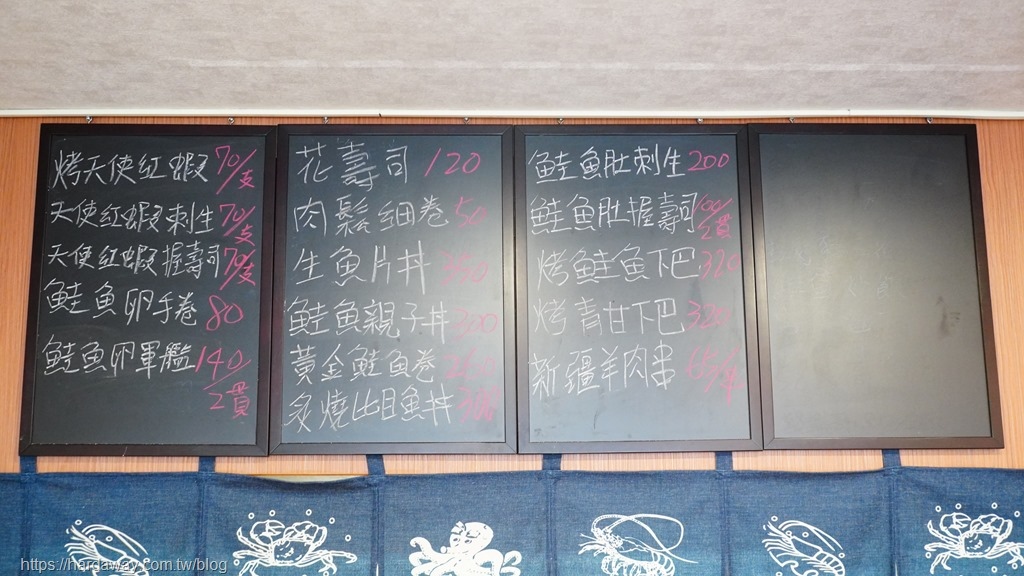 烤天使紅蝦 70/支
天使紅蝦刺生 70/支
天使紅蝦握壽司 70/支
鮭魚卵手卷 80
鮭魚卵軍艦 140/2貫
花壽司 120
肉鬆細卷 50
生魚片丼 350
鮭魚親子丼 300
黃金鮭魚卷 260
炙燒比目魚丼
鮭魚肚刺生 200
鮭魚肚握壽司 100/2貫
烤鮭魚下巴 320
烤青甘下巴 320
新疆羊肉串 65/串
https://hardaway.com.tw/blog